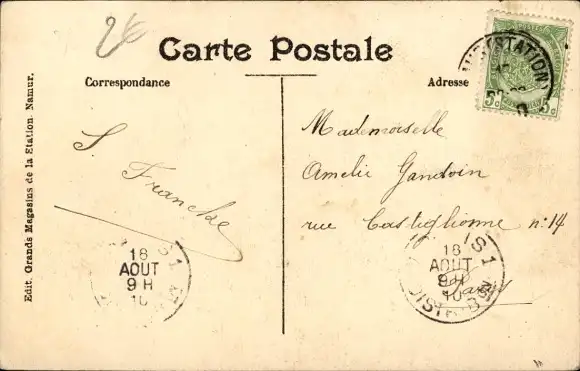 26
Carte Postale
Correspondance
Adresse
Edit. Grands Magasins de la Station Namur.
(STATION)
5c 5c
S Franche
Mademoiselle
Amelie Gandoin
rue Castiglionne n: 14
Paris
18
AOUT
9 H
10
S 1
18
AOUT
9 H
10
DISTRIB